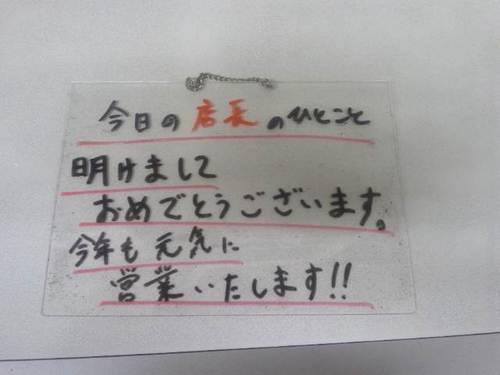 今日の店長のひとこと
明けまして
おめでとうございます。
今年も元気に
営業いたします!!